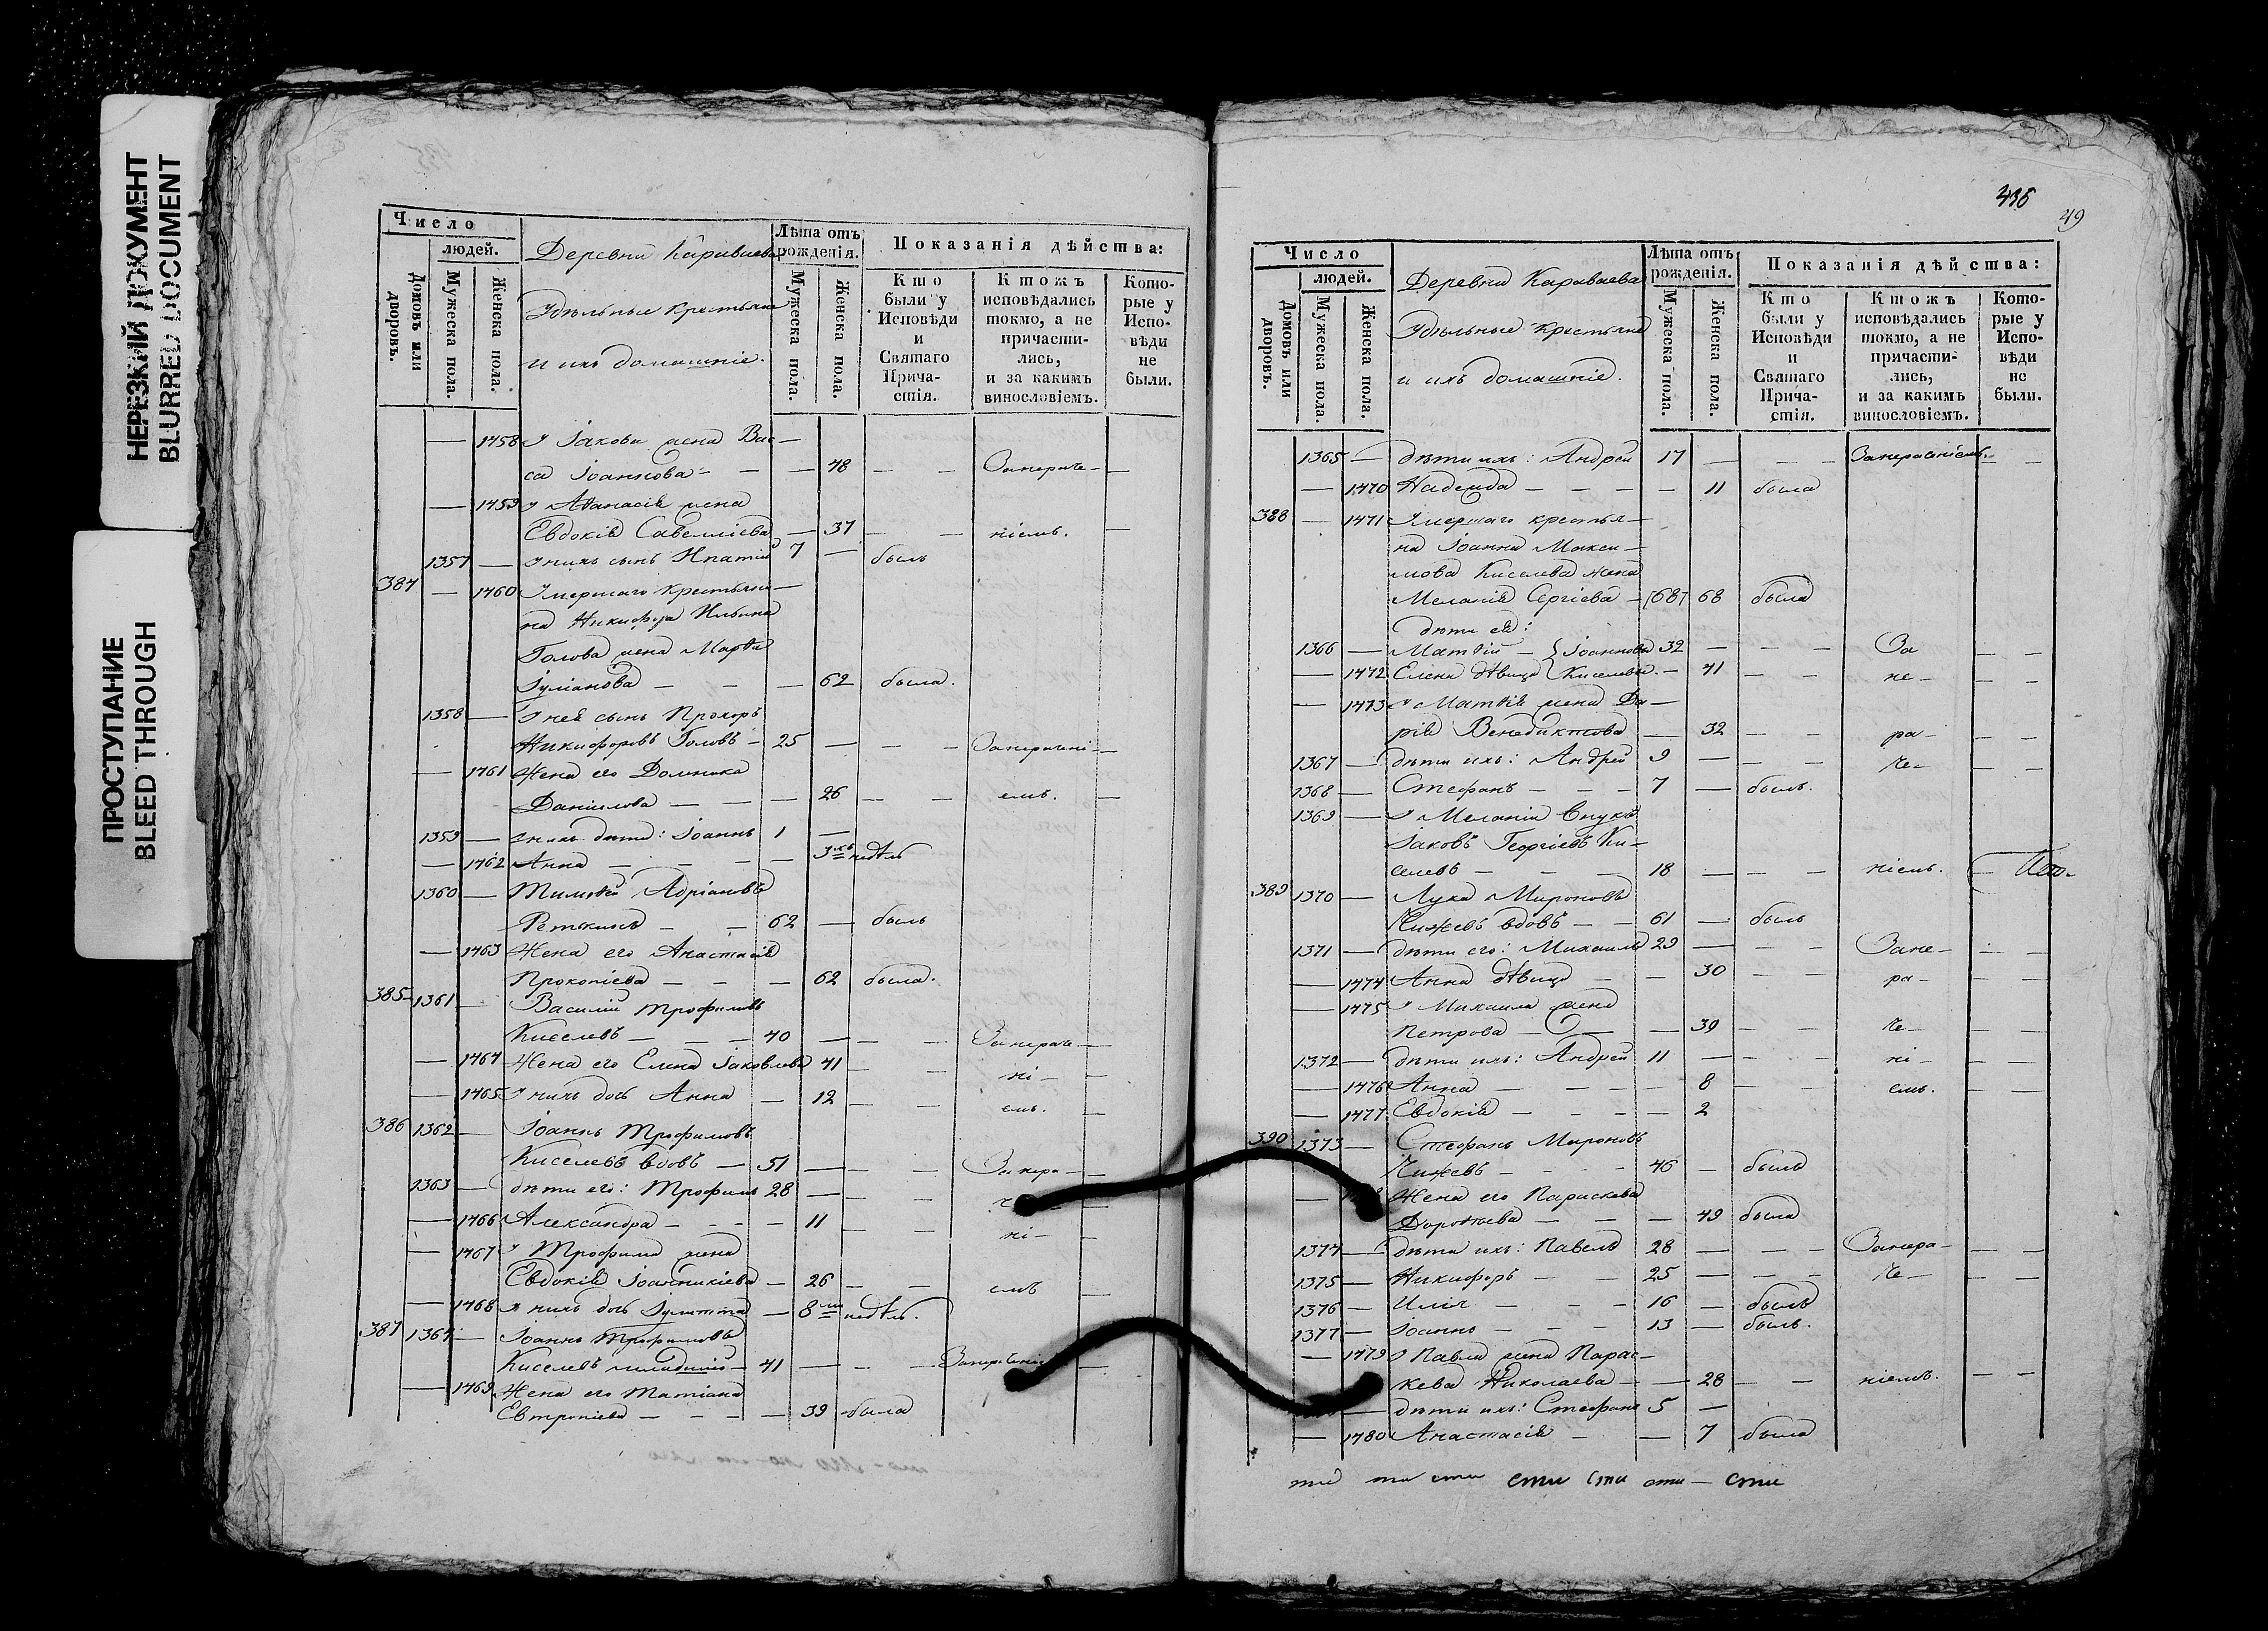 НЕРЕЗКИЙ ДОКУМЕНТ
BLURRED DOCUMENT
ПРОСТУПАНИЕ
BLEED THROUGH
Число
людей.
Домовъ или дворовъ.
Мужеска пола.
Женска пола.
Деревни Караваева
Удѣльные крестьяне
и ихъ домашніе.
Лѣта отъ рожденія.
Мужеска пола.
Женска пола.
Показанія дѣйства:
Кто были у Исповѣди и Святаго Прича-стія.
Ктожъ исповѣдались токмо, а не причасти-лись, и за какимъ винословіемъ.
Кото-рые у Испо-вѣди не были.
— 1458 У Іакова жена Вас—
са Іоаннова — — 48 — — Занераче— —
— 1459 У Аѳанасія жена
Евдокія Савелліева — 37 — — ніемъ. —
1357 — У нихъ сынъ Ипатій 7 — былъ
384 — 1460 Умершаго крестьяни—
на Никифора Ильина
Голова жена Марѳа
Іуліанова — — — 62 была.
1358 — У нея сынъ Прохоръ
Никифоровъ Головъ — 25 — — — Занерачені— —
— 1461 Жена его Домника
Даніилова — — — 26 — — емъ. —
1359 — У нихъ дѣти: Іоаннъ 1 —
— 1462 Анна — — — — 3хъ недѣль
1360 — Тимоѳей Адріановъ
— — 62 — былъ
— 1463 Жена его Анастасія
Прокопіева — — — 62 была.
385 1361 — Василій Трофимовъ
Киселевъ — — — 40 — — — Занераче— —
— 1464 Жена его Елена Іаковлева 41 — — ні— —
— 1465 У нихъ дочь Анна — 12 — — емъ. —
386 1362 — Іоаннъ Трофимовъ
Киселевъ вдовъ — 51 — — — Занера— —
1363 — дѣти его: Трофимъ 28 — — —
— 1466 Александра — — — — 11 — — ні— —
— 1467 У Трофима жена
Евдокія Іоанникіева — 26 — — емъ —
— 1468 У нихъ дочь Іулитта — 8ми недѣль.
387 1364 — Іоаннъ Трофимовъ
Киселевъ младшій — 41 — — — Занераченіемъ —
— 1469 Жена его Татіана
Евтропіева — — — — 39 была
436
49
Число
людей.
Домовъ или дворовъ.
Мужеска пола.
Женска пола.
Деревни Караваева
Удѣльные крестьяне
и ихъ домашніе.
Лѣта отъ рожденія.
Мужеска пола.
Женска пола.
Показанія дѣйства:
Кто были у Исповѣди и Святаго Прича-стія.
Ктожъ исповѣдались токмо, а не причасти-лись, и за какимъ винословіемъ.
Кото-рые у Испо-вѣди не были.
1365 — дѣти ихъ: Андрей 17 — — — Занераченіемъ. — —
— 1470 Надежда — — — — 11 была
388 — 1471 Умершаго крестья—
на Іоанна Макси—
мова Киселева жена
Меланія Сергіева — [68] 68 была
дѣти ея:
1366 — Матѳій — } Іоанновы 32 — — — За — —
— 1472 Елена дѣвица } Киселевы. — 41 — — не— — —
— 1473 У Матѳія жена Да—
рія Венедиктова — 32 — — ра— — —
1367 — дѣти ихъ: Андрей 9 — — — че— — —
1368 — Стефанъ — — — 7 — былъ.
1369 — У Меланіи внукъ
Іаковъ Георгіевъ Ки—
селевъ — — — 18 — — — ніемъ. —
389 1370 — Лука Мироновъ
Чижевъ вдовъ — — 61 — былъ
1371 — дѣти его: Михаилъ 29 — — — Зане— — —
— 1474 Анна дѣвица — — 30 — — ра— — —
— 1475 У Михаила жена
Петрова — — — 39 — — че— — —
1372 — дѣти ихъ: Андрей 11 — — — ні— — —
— 1476 Анна — — — — 8 — — емъ. — —
— 1477 Евдокія — — — — 2
390 1373 — Стефанъ Мироновъ
Чижевъ — — — — 46 — былъ
— Жена его Параскева
Дороѳіева — — — 49 была
1374 — дѣти ихъ: Павелъ 28 — — — Занера— — —
1375 — Никифоръ — — 25 — — — че— — —
1376 — Илія — — — 16 — былъ
1377 — Іоаннъ — — — 13 — былъ.
— 1479 У Павла жена Парас—
кева Николаева — — 28 — — ніемъ. — —
— дѣти ихъ: Стефанъ 5 —
— 1480 Анастасія — — 7 была
сти сти сти — сти